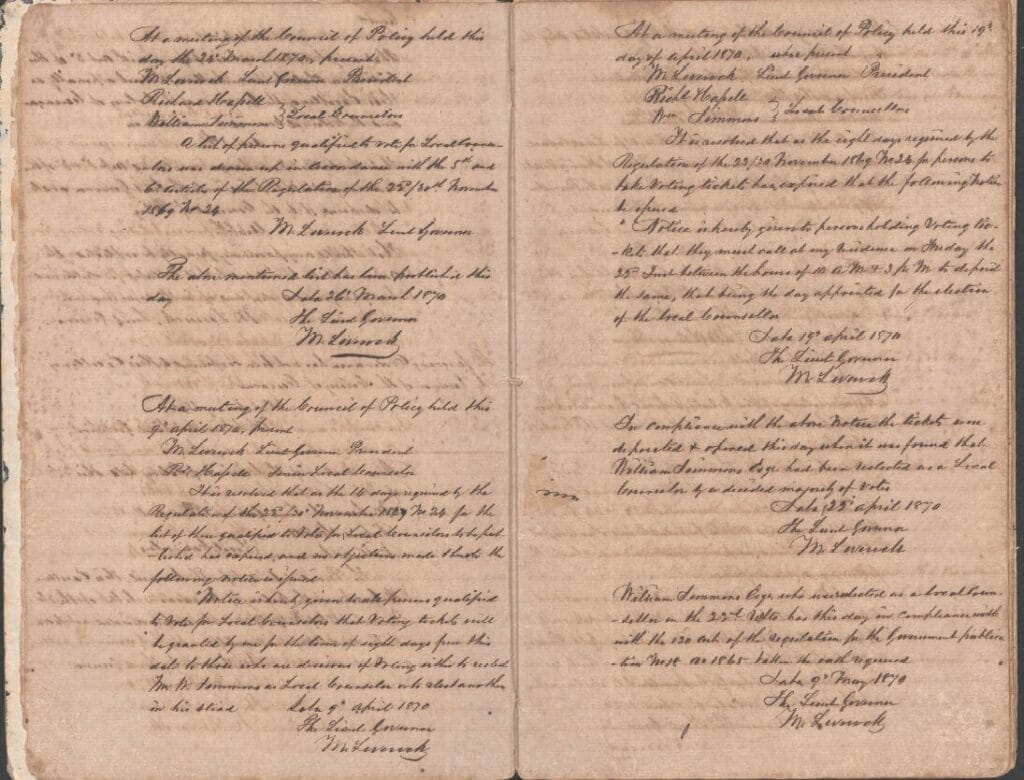 At a meeting of the Council of Policy held this
day the 25th March 1870, presents
M Leverock Lieut Governor President
Richard Hassell
William Simmons } Local Counselors
A list of persons qualified to vote for Local Coun-
lors was drawn up in accordance with the 5th and
6th Articles of the Regulation of the 22d/30th November
1869 No 24
M. Leverock Lieut Governor
The above mentioned list has been published this
day Saba 26th March 1870
The Lieut Governor
M. Leverock
At a meeting of the Council of Policy held this
9th April 1870, present
M Leverock Lieut Governor President
Rd Hassell Senior Local Counselor
It is resolved that as the 14 days required by the
Regulation of the 22d/30th November 1869 No 24 for the
list of those qualified to Vote for Local Counselors to be pub-
-lished has expired and no objections made thereto the
following notice is issued
"Notice is hereby given to all persons qualified
to Vote for Local Counselors that Voting tickets will
be granted by me for the term of eight days from this
date to those who are desirous of Voting either to reelect
Mr W. Simmons as Local Counselor or to elect another
in his stead Saba 9th April 1870
The Lieut Governor
M. Leverock
At a meeting of the Council of Policy held this 19th
day of April 1870, were present
M Leverock Lieut Governor President
Richd Hassell
Wm Simmons } Local Councellors
It is resolved that as the eight days required by the
Regulation of the 22/30 November 1869 No 24 for persons to
take Voting tickets has expired that the following Notice
be issued
"Notice is hereby given to persons holding Voting tic-
-kets that they must call at my residence on the
25th Inst between the hours of 10 A M & 3 P M to deposit
the same, that being the day appointed for the election
of the Local Counsellor
Saba 19th April 1870
The Lieut Governor
M Leverock
In compliance with the above Notice the tickets were
deposited & opened this day when it was found that
William Simmons Esqr had been reelected as a Local
Counselor by a decided majority of Votes
Saba 25th April 1870
The Lieut Governor
M Leverock
William Simmons Esqr who was reelected as a Local Coun-
-sellor on the has this day in compliance with
with the 130 art of the regulation for the Government publica-
-tion No 18 Ao 1865 taken the oath required
Saba 9th May 1870
The Lieut Governor
M Leverock